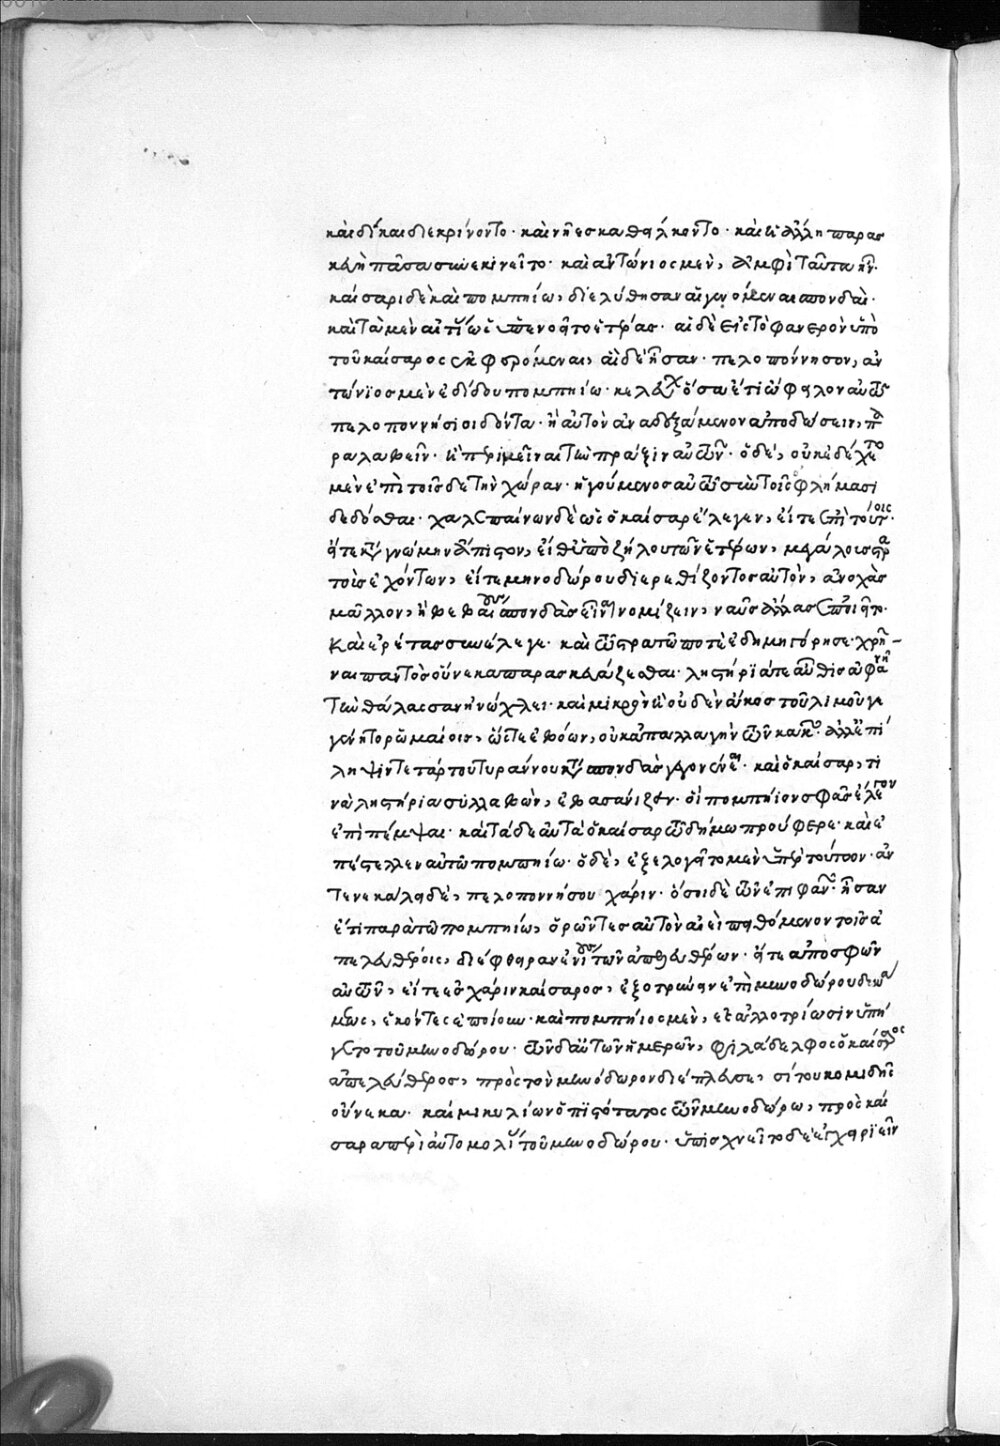 καὶ δίκαι διεκρίνοντο· καὶ νῆες καθείλκοντο· καὶ ἡ ἄλλη παρασ
κευὴ πᾶσα συνεκινεῖτο· καὶ ἀντώνιος μὲν, ἀμφὶ ταῦτα ἦν·
καίσαρι δὲ καὶ πομπηίω, διελύθησαν αἱ γενόμεναι σπονδαὶ·
κατὰ μὲν αἰτίας ὡς ὑπενοεῖτο ἑτέρας· αἱ δὲ εἰς τὸ φανερὸν ὑπὸ
τοῦ καίσαρος ἐκφερόμεναι, αἵδε ἦσαν· πελοπόννησον, ἀν
τώνϊος μὲν ἐδίδου πομπηίω· κελεύων ὅσα ἔτι ὤφειλον αὐτῶ
πελοποννήσιοι δόντα· ἢ αὐτὸν ἀναδεξάμενον ἀποδώσειν, πα
ραλαβεῖν· ἢ περιμεῖναι τὴν πρᾶξιν αὐτῶν· ὁ δέ, οὐκ ἐδέχετο
μὲν ἐπὶ τοῖσδε τὴν χώραν· ἡγούμενος αὐτῶ σὺν τοῖς ὀφλήμασι
δεδόσθαι· χαλεπαίνων δὲ ὡς ὁ καίσαρ ἔλεγεν, εἴτε ἐπὶ τούτοις·
εἴτε κατὰ γνώμην ἄπιστον, εἴθ' ὑπὸ ζήλου τῶν ἑτέρων, μεγάλους στρα
τοὺς ἐχόντων, εἴτε μηνοδώρου διερεθίζοντος αὐτὸν, ἀνοχὰς
μᾶλλον, ἢ βεβαίους σπονδὰς εἶναι νομίζειν, ναῦς ἄλλας ἐποιεῖτο·
καὶ ἐρέτας συνέλεγε· καὶ τῶ στρατῶ ποτὲ ἐδημηγόρησε χρῆ-
ναι παντὸς οὕνεκα παρασκευάζεσθαι· ληστήριά τε αὖθις ἀφανῆ
τὴν θάλασσαν ἠνώχλει· καὶ μικρὸν ἢ οὐδὲν ἄκος τοῦ λιμοῦ γε
γένητο ῥωμαίοις, ὥστε ἐβόων, οὐκ ἀπαλλαγὴν τῶν κακῶν· ἀλλ' ἐπί
ληψιν τετάρτου τυράννου κατὰ σπονδὰς γεγονέναι· καὶ ὁ καίσαρ, τι
νὰ ληστήρια συλλαβὼν, ἐβασάνιζεν· οἳ πομπήϊον σφᾶς ἔλεγον
ἐπιπέμψαι· καὶ τάδε αὐτὰ ὁ καίσαρ τῶ δήμω προύφερε· καὶ ἐ
πέστελλεν αὐτῶ πομπηίω· ὁ δὲ, ἐξελογεῖτο μὲν ὑπὲρ τούτων· ἀν
τενεκάλει δὲ, πελοποννήσου χάριν· ὅσοι δὲ τῶν ἐπιφανῶν· ἦσαν
ἔτι παρὰ τῶ πομπηίω, ὁρῶντες αὐτὸν αἰεὶ πειθόμενον τοῖς ἀ
πελευθέροις, διέφθειραν ἐνίους τῶν ἀπελευθέρων· εἴτε ἀπὸ σφῶν
αὐτῶν, εἴτε ἐς χάριν καίσαρος, ἐξοτρύνειν ἐπὶ μηνοδώρου δεινὰ
μως, ἑκόντες ἐποίουν· καὶ πομπήιος μὲν, ἐς ἀλλοτρίωσιν ὑπή
γετο τοῦ μηνοδώρου· τῶν δ' αὐτῶν ἡμερῶν, φιλάδελφος ὁ καίσαρος
ἀπελεύθερος, πρὸς τὸν μηνόδωρον διέπλευσε, σίτου κομιδῆς
οὕνεκα· καὶ μικυλίων ὁ πιστότατος τῶν μηνοδώρω, πρὸς καί
σαρα περὶ αὐτομολίας τοῦ μηνοδώρου· ὑπισχνεῖτο δὲ ἐγχειρϊεῖν